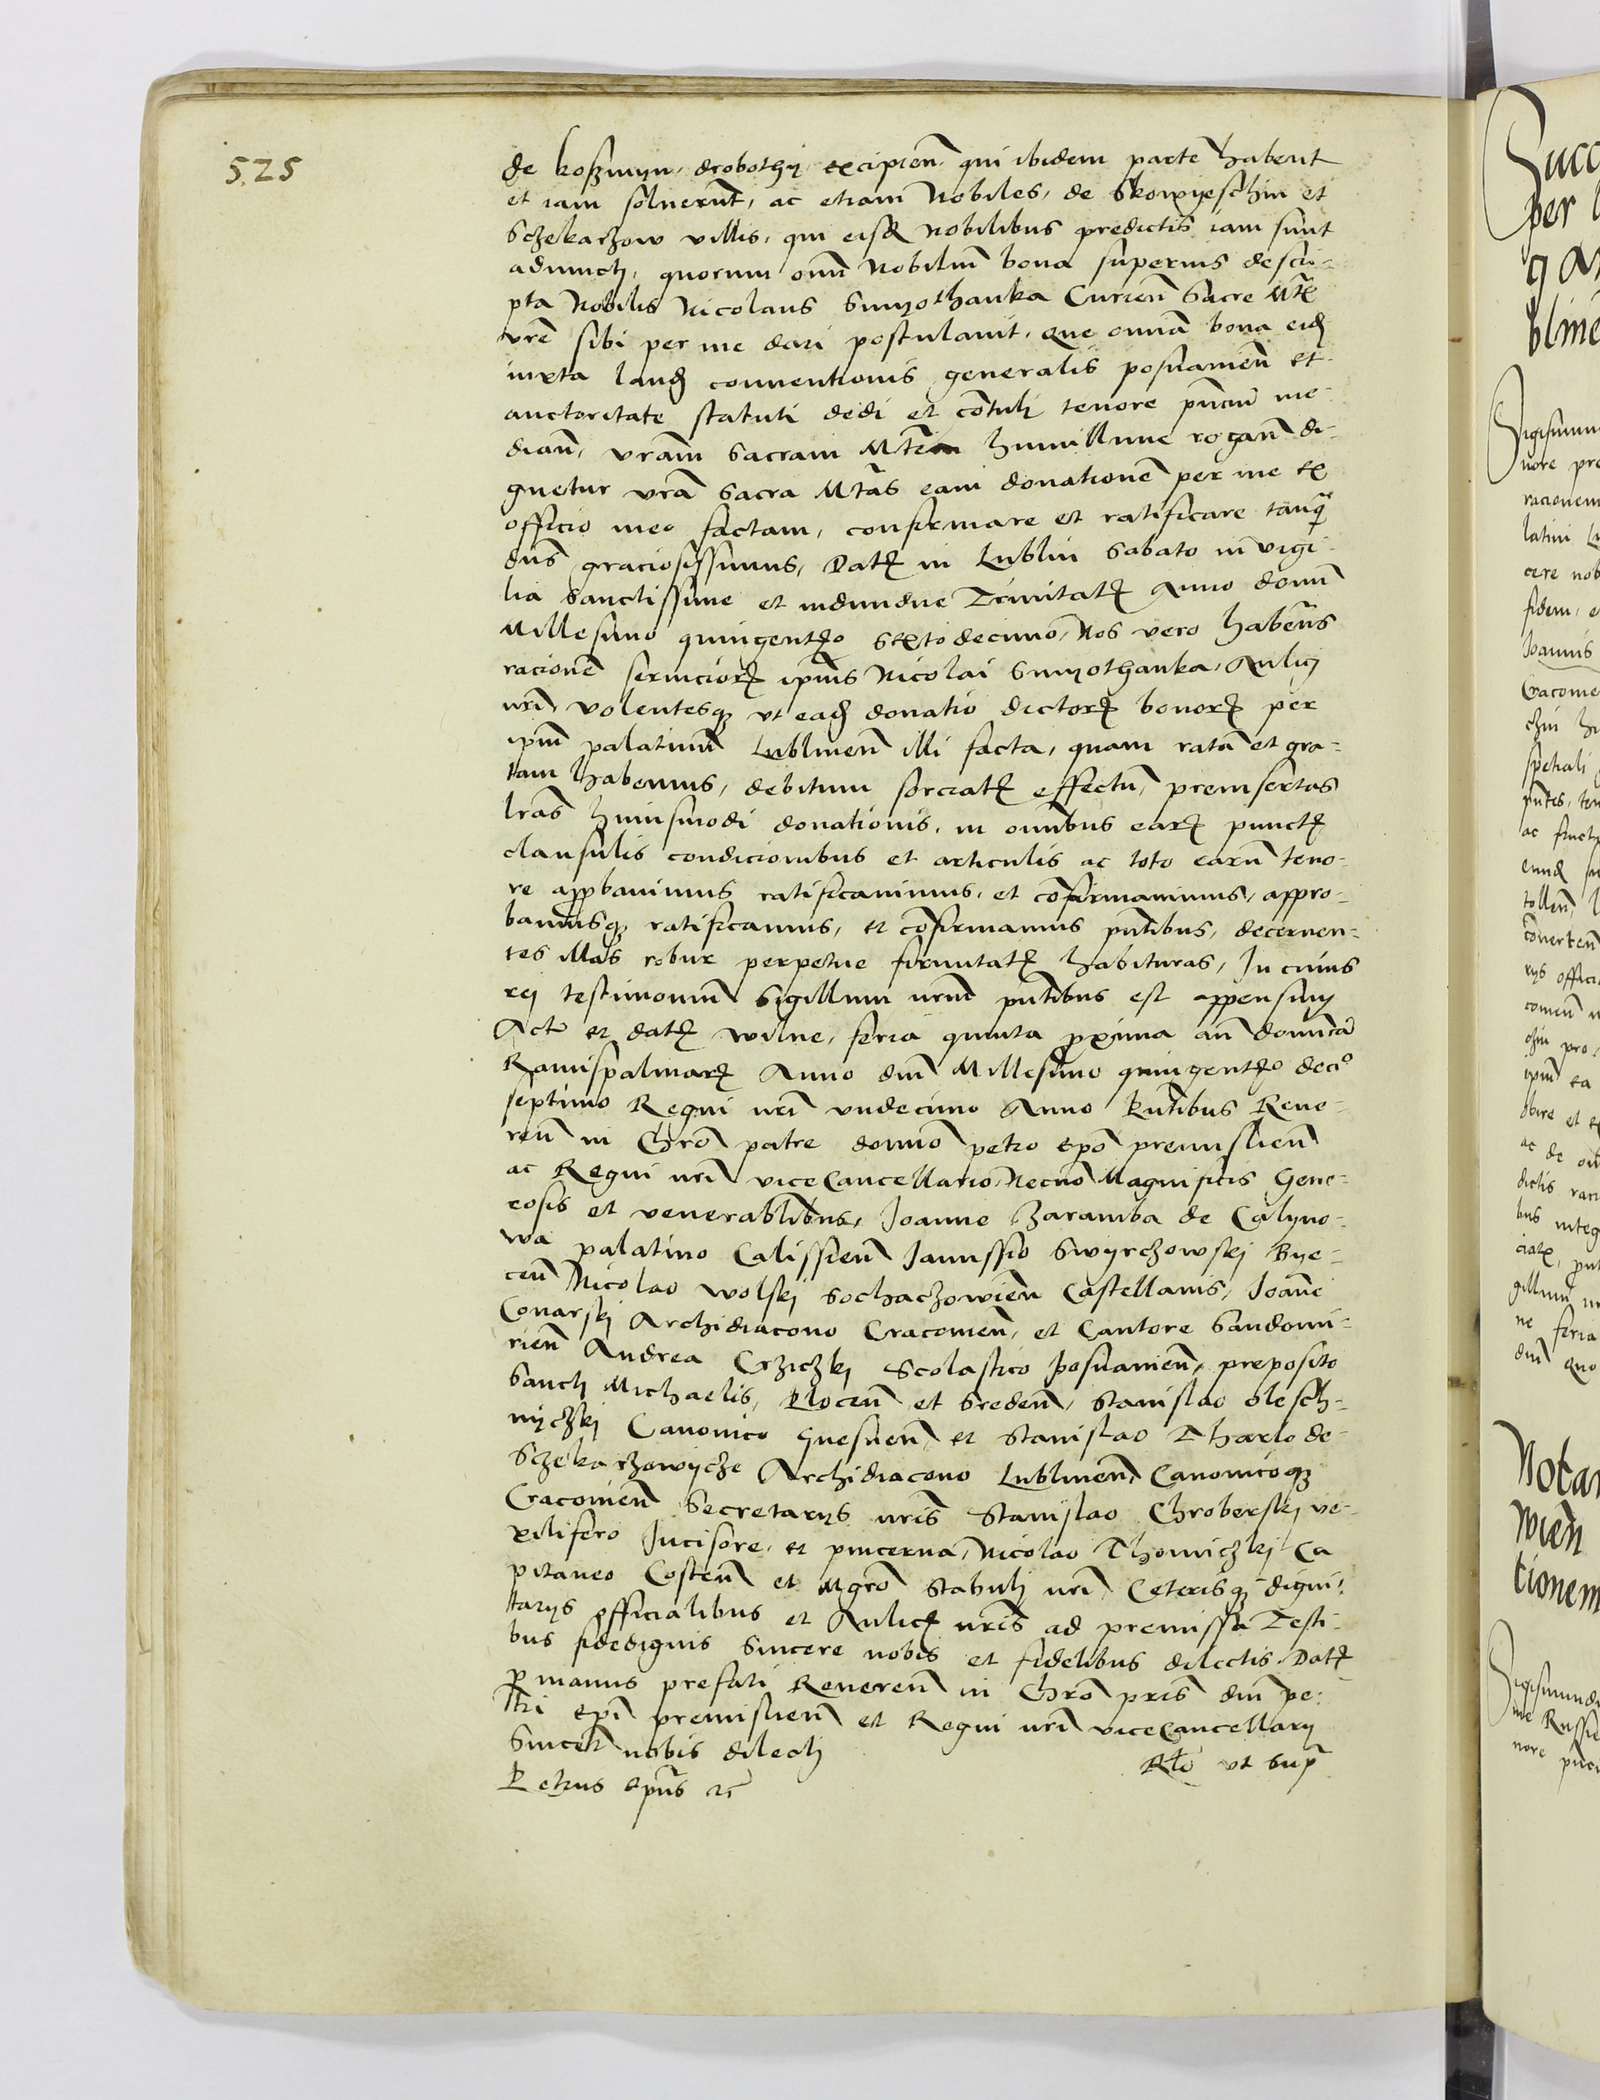 525
de koszmyn, drobothy excipien̄ qui ibidem parte habent
et iam solverunt, ac etiam Nobiles, de Skowyeschin et
Sczekarzow villis, qui eisd nobilibus predictis iam sunt
adiuncti, quorum om̄ Nobiliū bona superius descri-
pta Nobilis Nicolaus Smyothanka Curien̄ Sacre Mt̄s
vr̄e sibi per me dari postulavit, que omnia bona eid
iuxta laud conventionis generalis posnanien̄ et
auctoritate statuti dedi et cōtuli tenore pn̄ciū me-
dian̄, vr̄am Sacram Mt̄em humillime rogan̄ di-
gnetur vr̄a Sacra Mt̄as eam donationē per me ex
officio meo factam, confirmare et ratificare tanq̄
dn̄s graciosissimus, Dat in Lublin Sabato in vigi-
lia Sanctissime et individue Trinitat Anno domi
Millesimo quingento sextodecimo, Nos vero habentes
racionē servicior ipius Nicolai Smyothanka, Aulici
nr̄i volentesq vt ead donatio dictor bonor per
ipm̄ palatinū Lublinen̄ illi facta, quam ratā et gra-
tam habemus, debitum sorciat effectū, preinsertas
lr̄as huiusmodi donationis, in omībus ear punct
clausulis condicionibus et articulis ac toto earū teno-
re approbavimus ratificavimus, et cōfirmavimus, appro-
bamusq ratificamus, et cōfirmamus pn̄tibus, decernen-
tes illas robur perpetue firmitat habituras, In cuius
rei testimoniū Sigillum nr̄m pn̄tibus est appensum
Act et dat wilne, feria quinta proxima an̄ dominicā
Ramispalmar Anno dni Millesimo quingento deci°
septimo Regni nr̄i vndecimo Anno Pn̄tibus Reve-
ren̄ in Chr̄o patre domno petro ep̄o premislien̄
ac Regni nr̄i viceCancellario, Necnō Magnificis Gene-
rosis et venerablibus, Joanne Zaramba de Calyno-
wa palatino Calissien̄ Janussio Swyrczowski Bye-
cen̄ Nicolao wolski Sochaczowien̄ Castellanis, Joānē
Conarski Archidiacono Cracovien̄, et Cantore Sandomi-
rien̄ Andrea Crziczki Scolastico posnanien̄, preposito
Sancti Michaelis, Plocen̄ et Sreden̄, Stanislao olesch-
nyczki Canonico Gnesnen̄ et Stanislao Tharlo de
Sczekarzowycze Archidiacono Lublinen̄, Canonicoq
Cracovien̄ Secretarys nr̄is Stanislao Chroberski ve-
xilifero Incisore, et pincerna, Nicolao Thomiczki Ca
pitaneo Costen̄ et Mgr̄o Stabuli nr̄i Ceterisq digni-
tarys officialibus et Aulic nr̄is ad premissa Testi-
bus fidedignis Sincere nobis et fidelibus dilectis, Dat
p manus prefati Reveren̄ in Chr̄o pr̄is dni pe-
tri Ep̄i premislien̄ et Regni nr̄i viceCancellary
Sincer nobis dilecti
Rl̄o vt sup
Petrus Ep̄us
Succ
per
blinē
Sigismun
nore pre
racionem
latini Lu
cere nob
fidem, e
Joannis
Cracovie
czin
spetiali
ac
tollen̄
cōverten̄
rys offici
ipm̄ ea
ac de
dictis
bus integ
gillum nr
ne feria
dni quo
Notar
wien
tionem
Sigismundu
Russie
nore